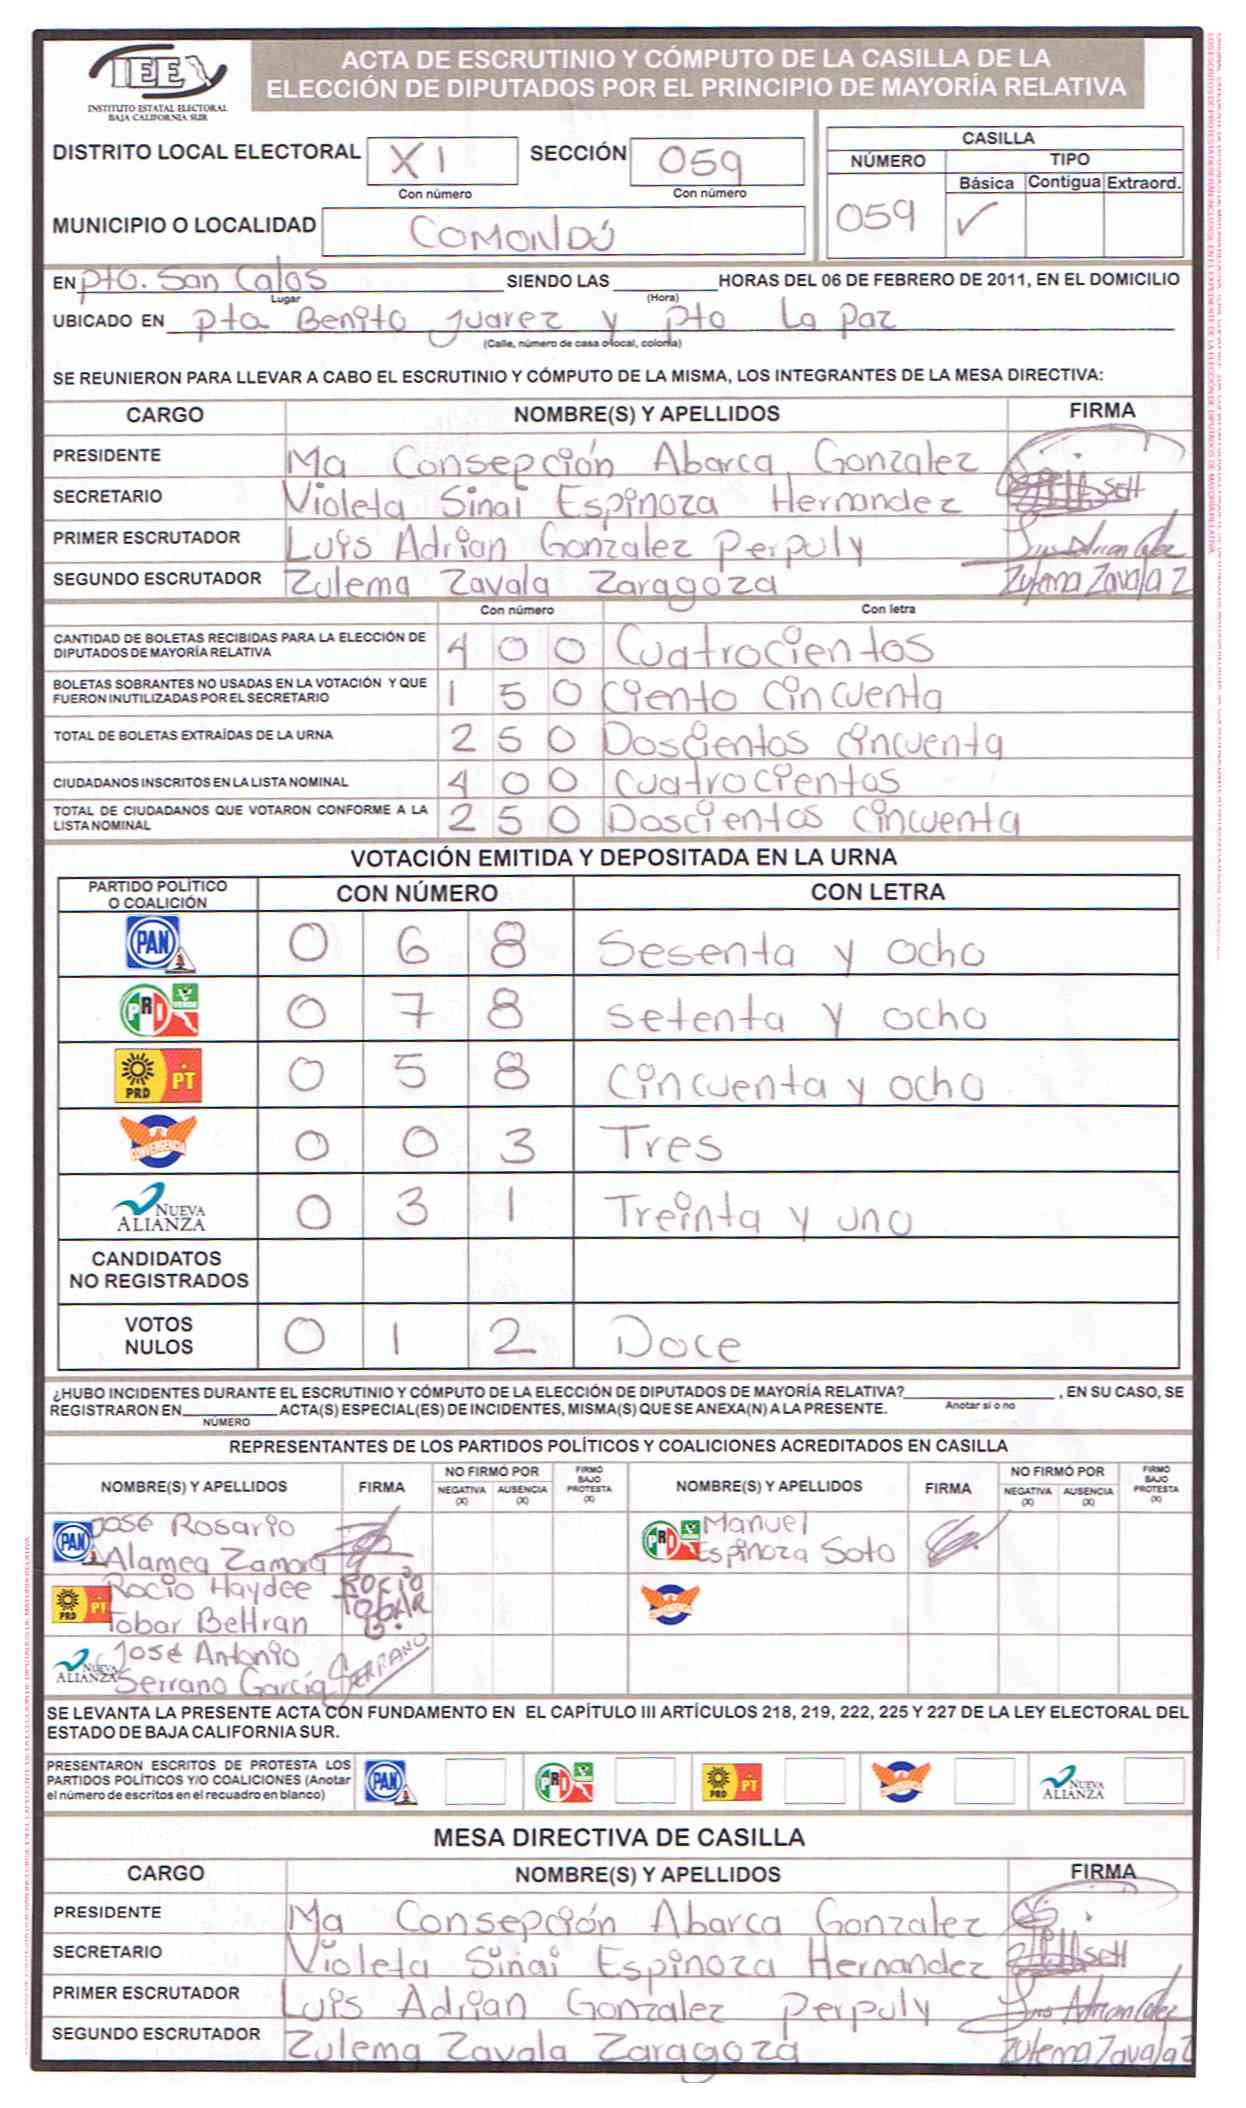 IEE
INSTITUTO ESTATAL ELECTORAL
BAJA CALIFORNIA SUR
ACTA DE ESCRUTINIO Y CÓMPUTO DE LA CASILLA DE LA
ELECCIÓN DE DIPUTADOS POR EL PRINCIPIO DE MAYORÍA RELATIVA
DISTRITO LOCAL ELECTORAL XI SECCIÓN 059
Con número Con número
MUNICIPIO O LOCALIDAD COMONDÚ
CASILLA
NÚMERO TIPO
Básica Contigua Extraord.
059 ✓
EN pto. San Calos SIENDO LAS HORAS DEL 06 DE FEBRERO DE 2011, EN EL DOMICILIO
Lugar (Hora)
UBICADO EN pta Benito Juarez y pto La paz
(Calle, número de casa o local, colonia)
SE REUNIERON PARA LLEVAR A CABO EL ESCRUTINIO Y CÓMPUTO DE LA MISMA, LOS INTEGRANTES DE LA MESA DIRECTIVA:
CARGO NOMBRE(S) Y APELLIDOS FIRMA
PRESIDENTE Ma Consepción Abarca Gonzalez
SECRETARIO Violeta Sinai Espinoza Hernandez
PRIMER ESCRUTADOR Luis Adrian Gonzalez Perpuly
SEGUNDO ESCRUTADOR Zulema Zavala Zaragoza Zulema Zavala Z
Con número Con letra
CANTIDAD DE BOLETAS RECIBIDAS PARA LA ELECCIÓN DE
DIPUTADOS DE MAYORÍA RELATIVA 4 0 0 Cuatrocientos
BOLETAS SOBRANTES NO USADAS EN LA VOTACIÓN Y QUE
FUERON INUTILIZADAS POR EL SECRETARIO 1 5 0 Ciento cincuenta
TOTAL DE BOLETAS EXTRAÍDAS DE LA URNA 2 5 0 Doscientos cincuenta
CIUDADANOS INSCRITOS EN LA LISTA NOMINAL 4 0 0 Cuatrocientos
TOTAL DE CIUDADANOS QUE VOTARON CONFORME A LA
LISTA NOMINAL 2 5 0 Doscientos cincuenta
VOTACIÓN EMITIDA Y DEPOSITADA EN LA URNA
PARTIDO POLÍTICO
O COALICIÓN CON NÚMERO CON LETRA
PAN 0 6 8 Sesenta y ocho
PRI VERDE 0 7 8 Setenta y ocho
PRD PT 0 5 8 Cincuenta y ocho
CONVERGENCIA 0 0 3 Tres
NUEVA
ALIANZA 0 3 1 Treinta y uno
CANDIDATOS
NO REGISTRADOS
VOTOS
NULOS 0 1 2 Doce
¿HUBO INCIDENTES DURANTE EL ESCRUTINIO Y CÓMPUTO DE LA ELECCIÓN DE DIPUTADOS DE MAYORÍA RELATIVA? , EN SU CASO, SE
Anotar si o no
REGISTRARON EN ACTA(S) ESPECIAL(ES) DE INCIDENTES, MISMA(S) QUE SE ANEXA(N) A LA PRESENTE.
NÚMERO
REPRESENTANTES DE LOS PARTIDOS POLÍTICOS Y COALICIONES ACREDITADOS EN CASILLA
NOMBRE(S) Y APELLIDOS FIRMA NO FIRMÓ POR NEGATIVA (X) AUSENCIA (X) FIRMÓ BAJO PROTESTA (X) NOMBRE(S) Y APELLIDOS FIRMA NO FIRMÓ POR NEGATIVA (X) AUSENCIA (X) FIRMÓ BAJO PROTESTA (X)
PAN José Rosario PRI VERDE Manuel
Alamea Zamora Espinoza Soto
PRD PT Rocio Haydee ROCIO CONVERGENCIA
Tobar Beltran TOBAR B.
NUEVA ALIANZA José Antonio
Serrano García SERRANO
SE LEVANTA LA PRESENTE ACTA CON FUNDAMENTO EN EL CAPÍTULO III ARTÍCULOS 218, 219, 222, 225 Y 227 DE LA LEY ELECTORAL DEL
ESTADO DE BAJA CALIFORNIA SUR.
PRESENTARON ESCRITOS DE PROTESTA LOS
PARTIDOS POLÍTICOS Y/O COALICIONES (Anotar
el número de escritos en el recuadro en blanco) PAN PRI VERDE PRD PT CONVERGENCIA NUEVA ALIANZA
MESA DIRECTIVA DE CASILLA
CARGO NOMBRE(S) Y APELLIDOS FIRMA
PRESIDENTE Ma Consepción Abarca Gonzalez
SECRETARIO Violeta Sinai Espinoza Hernandez
PRIMER ESCRUTADOR Luis Adrian Gonzalez Perpuly
SEGUNDO ESCRUTADOR Zulema Zavala Zaragoza Zulema Zavala Z